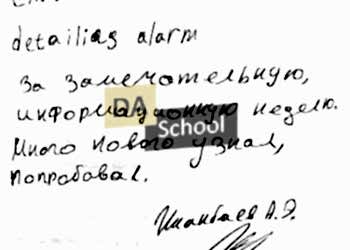 detailing alarm
За замечательную,
информационную неделю.
Много нового узнал,
попробовал.
DA
School